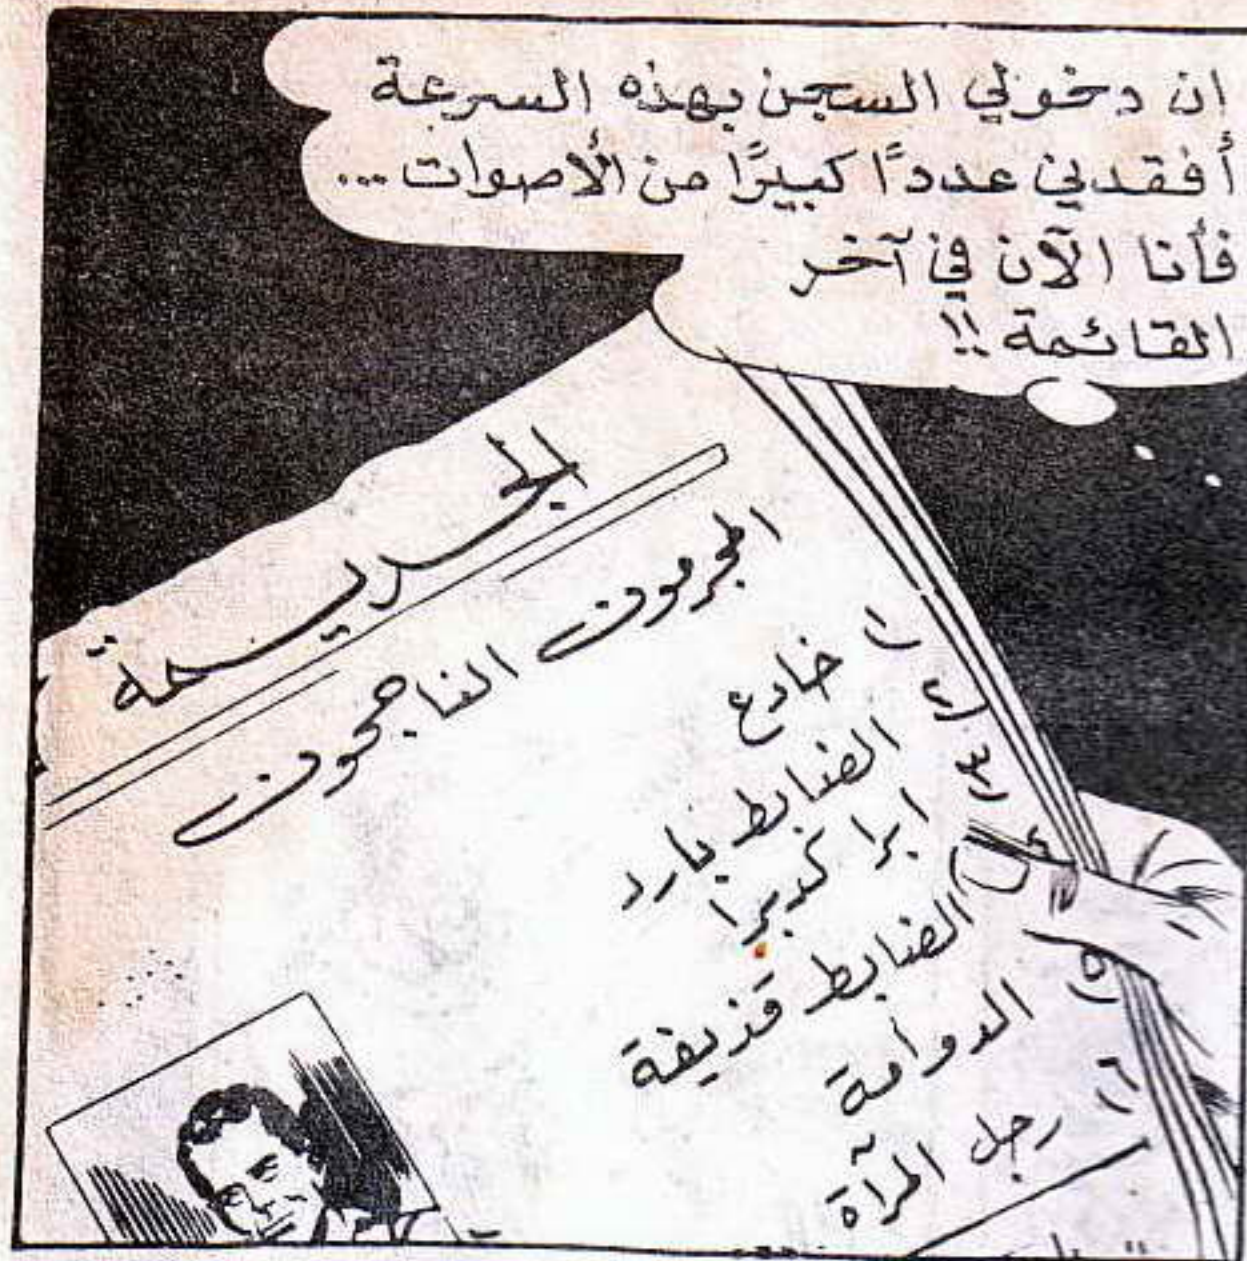 ان دخولي السجن بهذه السرعة
أفقدني عددًا كبيرًا من الأصوات...
فأنا الآن في آخر
القائمة!!
الجريمة
المجرمون الناجحون
١) خادع
٢) الضابط بارد
٣) ابرا كدبرا
٤) الضابط قذيفة
٥) الدوامة
٦) رجل المرآة